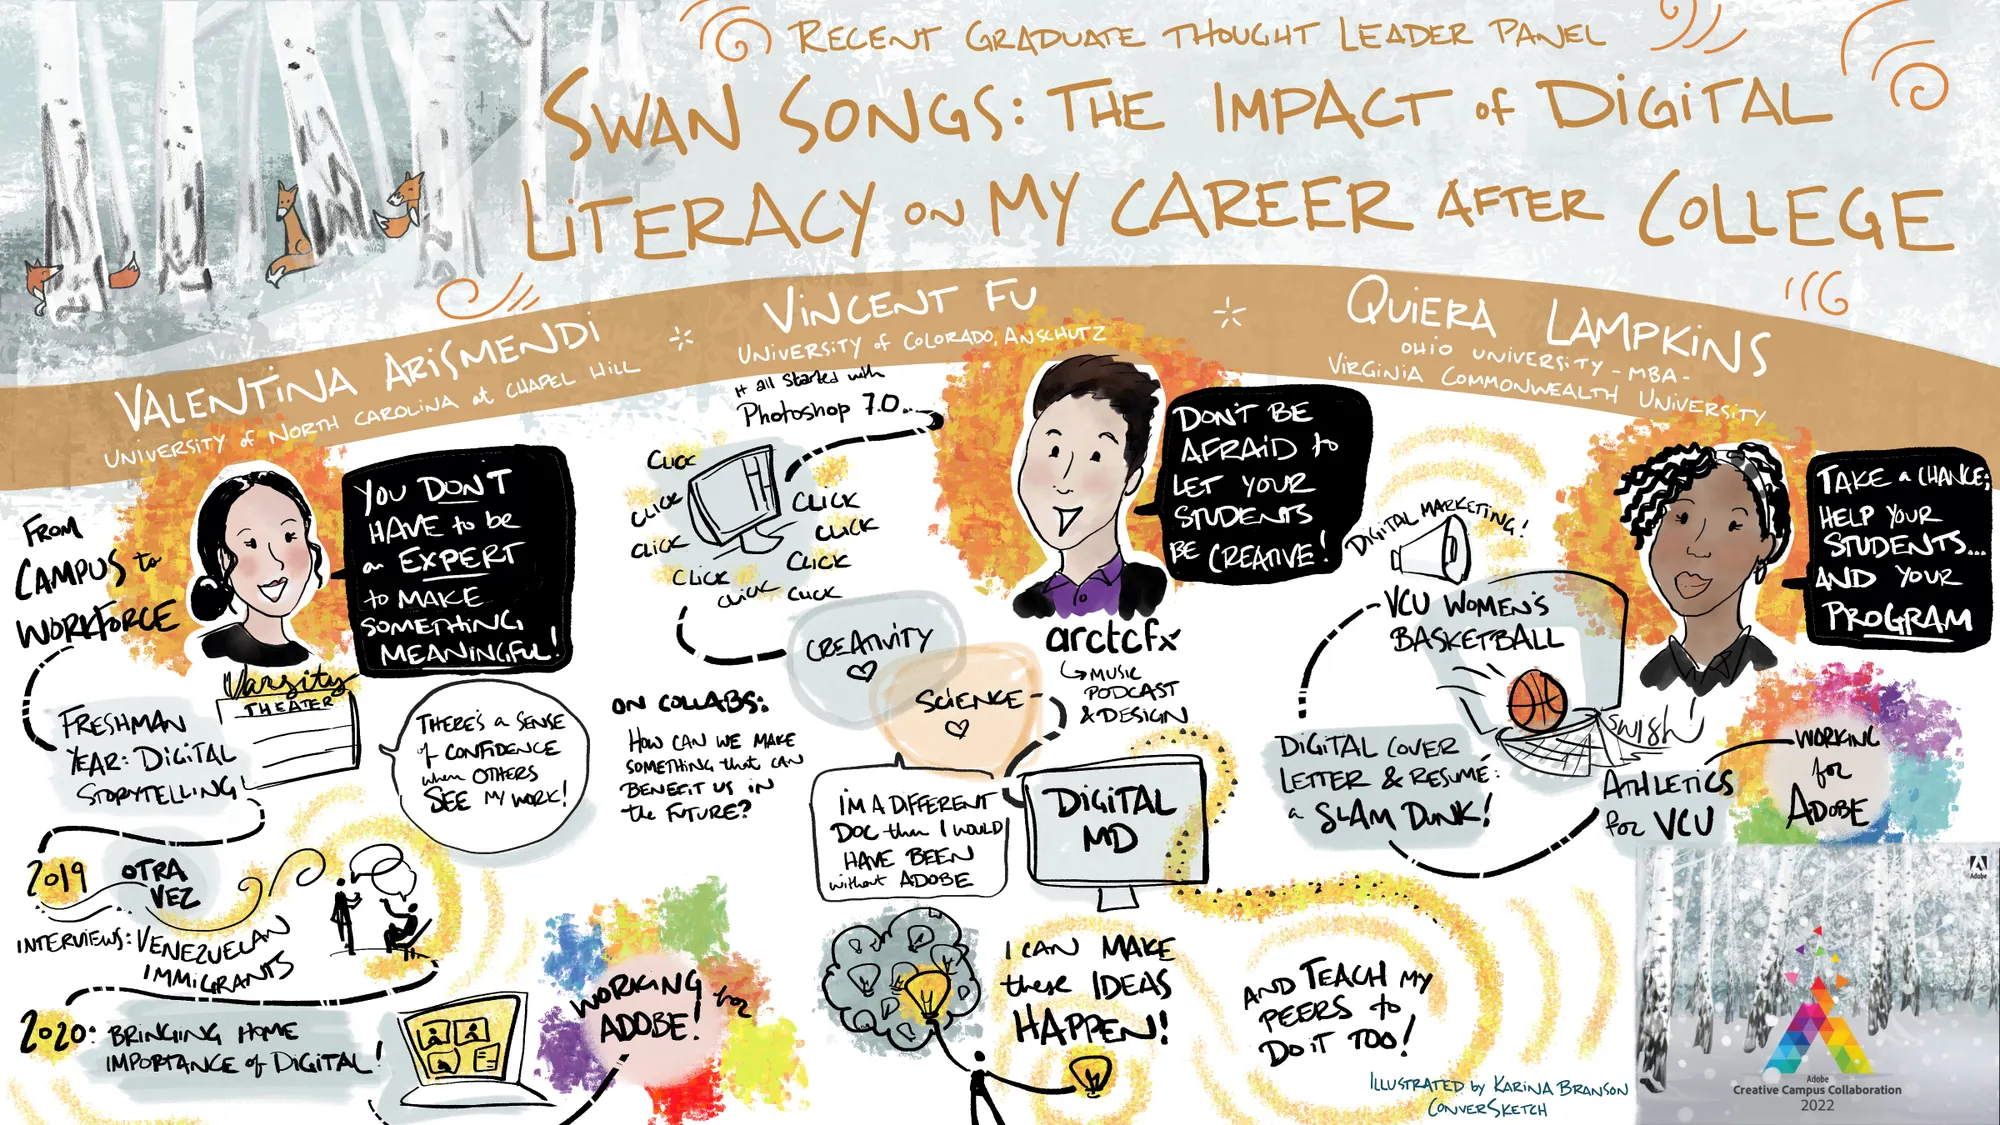 RECENT GRADUATE THOUGHT LEADER PANEL
SWAN SONGS: THE IMPACT of DIGITAL
LITERACY ON MY CAREER AFTER COLLEGE
VALENTINA ARISMENDI
UNIVERSITY of NORTH CAROLINA at CHAPEL HILL
VINCENT FU
UNIVERSITY of COLORADO, ANSCHUTZ
QUIERA LAMPKINS
OHIO UNIVERSITY - MBA -
VIRGINIA COMMONWEALTH UNIVERSITY
FROM
CAMPUS to
WORKFORCE
YOU DON'T
HAVE to be
an EXPERT
to MAKE
SOMETHING
MEANINGFUL!
Varsity
THEATER
FRESHMAN
YEAR: DIGITAL
STORYTELLING
THERE'S a SENSE
of CONFIDENCE
when OTHERS
SEE MY WORK!
2019
OTRA
VEZ
INTERVIEWS: VENEZUELAN
IMMIGRANTS
2020: BRINGING HOME
IMPORTANCE of DIGITAL!
WORKING for
ADOBE!
it all started with
Photoshop 7.0...
CLICK
CLICK
CLICK
CLICK
CLICK
CLICK
CLICK
CLICK
CLICK
DON'T BE
AFRAID to
LET YOUR
STUDENTS
BE CREATIVE!
CREATIVITY
SCIENCE
arctcfx
MUSIC
PODCAST
& DESIGN
ON COLLABS:
HOW CAN WE MAKE
SOMETHING that CAN
BENEFIT US IN
the FUTURE?
I'M A DIFFERENT
DOC than I WOULD
HAVE BEEN
without ADOBE
DIGITAL
MD
I CAN MAKE
these IDEAS
HAPPEN!
AND TEACH MY
PEERS to
DO IT TOO!
DIGITAL MARKETING!
VCU WOMEN'S
BASKETBALL
TAKE a CHANCE;
HELP YOUR
STUDENTS...
AND YOUR
PROGRAM
Swish!
DIGITAL COVER
LETTER & RESUME:
a SLAM DUNK!
ATHLETICS
for VCU
WORKING
for
ADOBE
ILLUSTRATED by KARINA BRANSON
CONVERSKETCH
Adobe
Adobe
Creative Campus Collaboration
2022